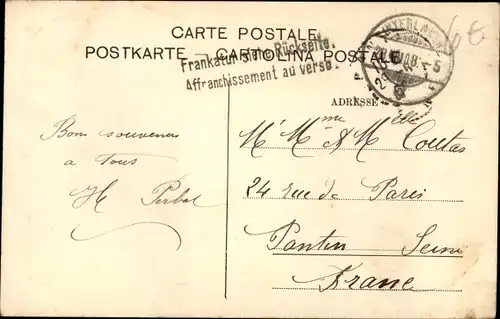 CARTE POSTALE.
POSTKARTE – CARTOLINA POSTALE
Frankatur siehe Rückseite.
Affranchissement au verso.
ADRESSE
6E
Bon souvenir
a tous
H
Mr Mme & Melle Coutas
24 rue de Paris
Pantin Seine
France